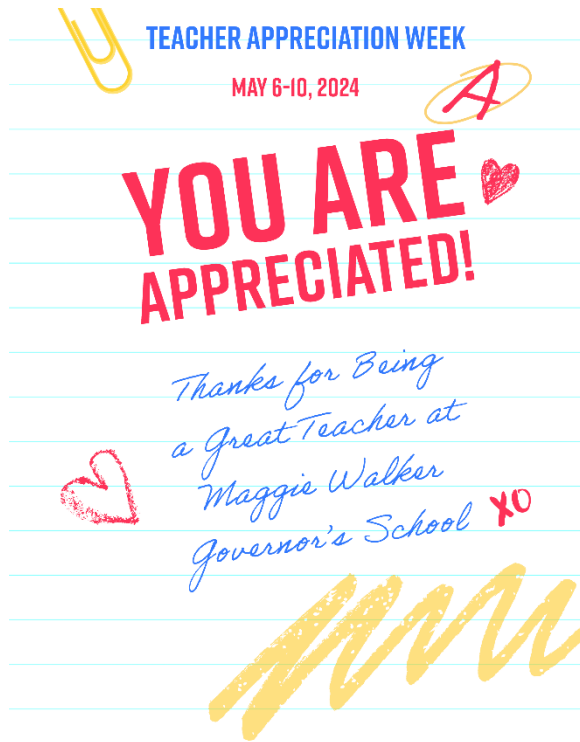 TEACHER APPRECIATION WEEK
MAY 6-10, 2024
A
YOU ARE
APPRECIATED!
Thanks for Being
a Great Teacher at
Maggie Walker
Governor's School XO